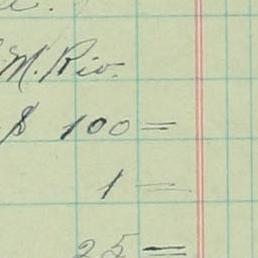 M. Riv.
$ 100 =
1 =
25 =